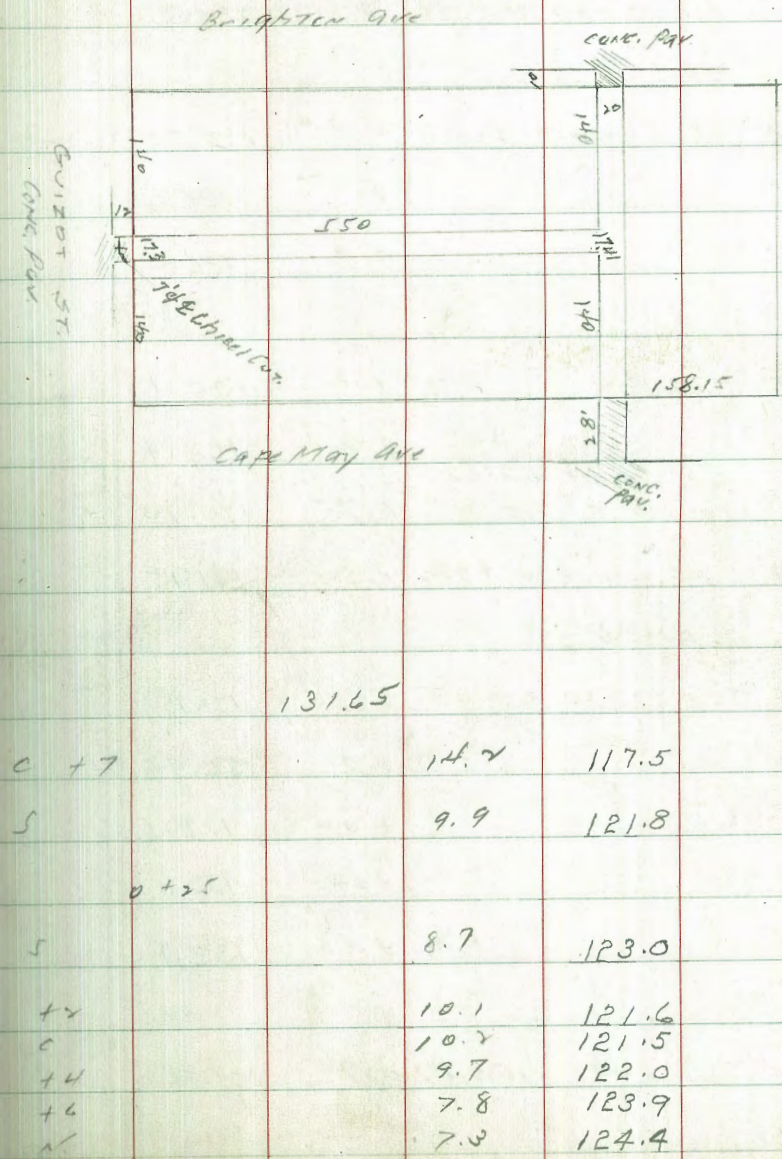 Brighton Ave
CONC. PAV.
20
140
140
GUIZOT ST.
CONC. PAV.
12
550
17.3
17.41
140
140
158.15
28'
Cape May Ave
CONC. PAV.
131.65
C +7 14.2 117.5
S 9.9 121.8
0 +25
S 8.7 123.0
+2 10.1 121.6
C 10.2 121.5
+4 9.7 122.0
+6 7.8 123.9
N 7.3 124.4